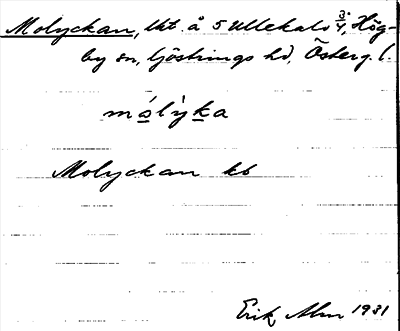 Molyckan, lht. å 5 Ullekalv 3/4, Hög-
by sn, Göstrings hd, Österg. l.
mólỳka
Molyckan kb
Erik Alm 1931